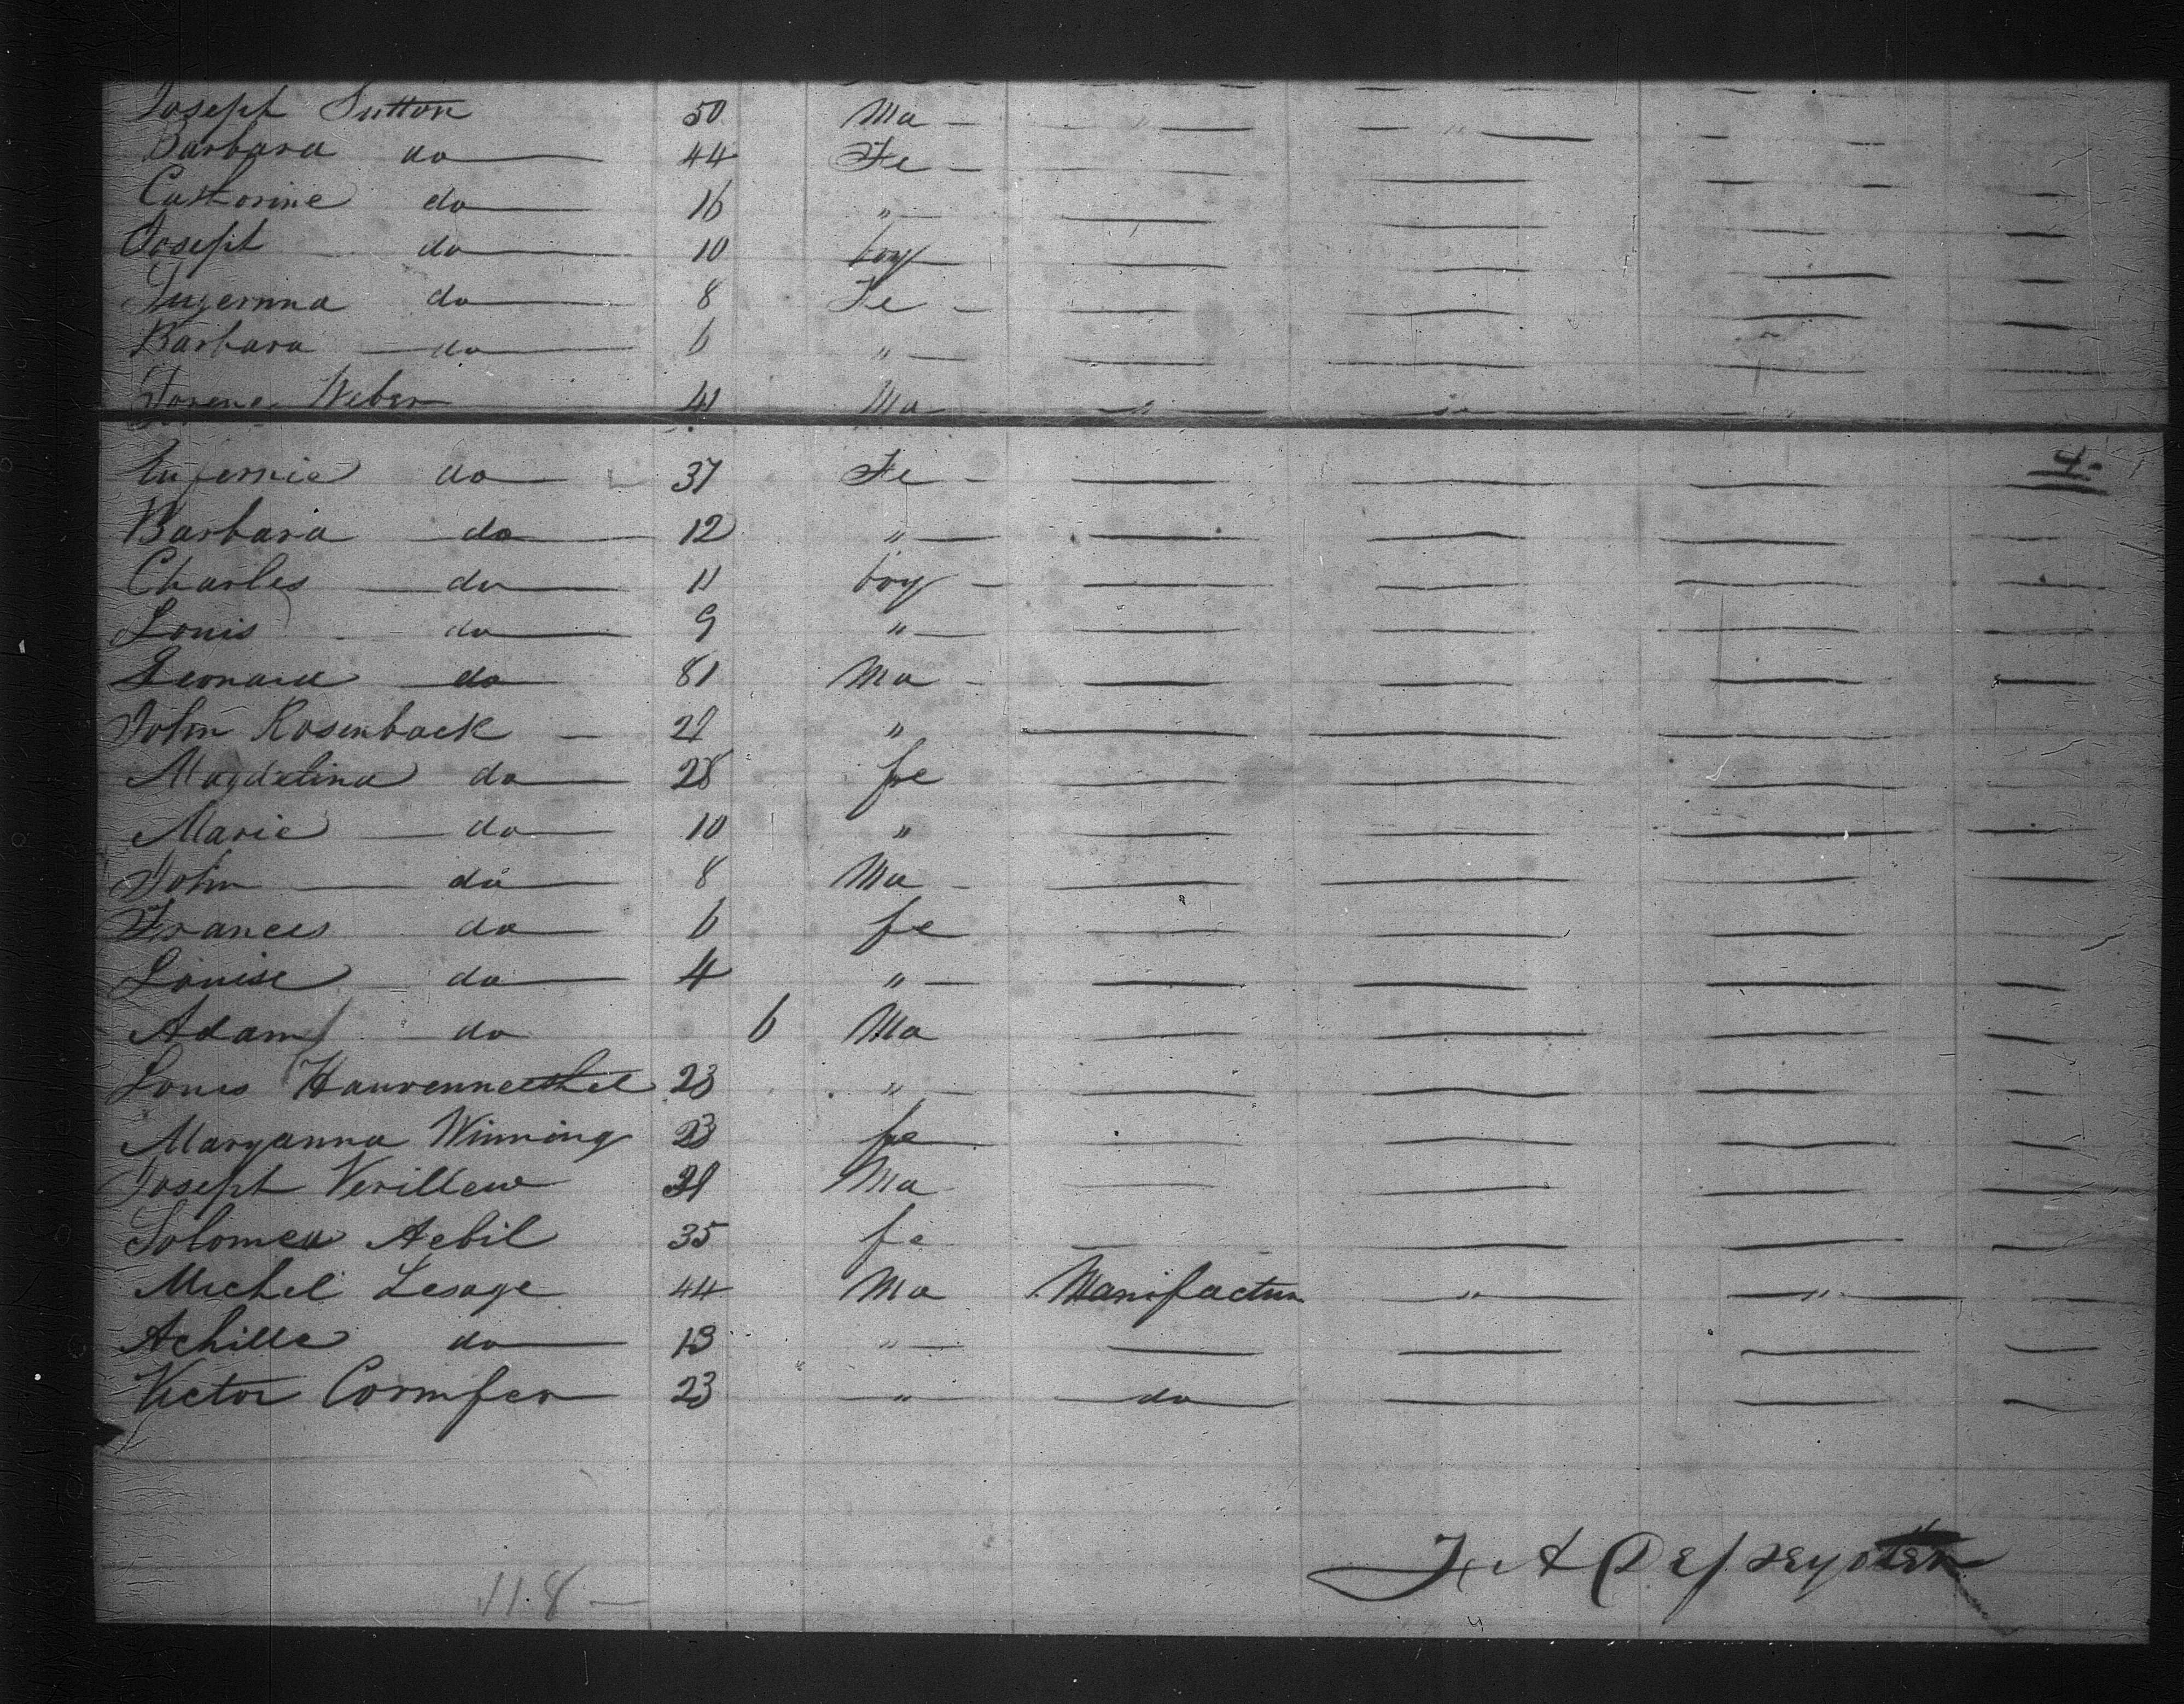 Joseph Sutton 50 Ma — " — — " —
Barbara do 44 Fe —
Cathorine do 16 "
Joseph do 10 boy
do 8 Fe —
Barbara do 6 "
Weber 41 Ma — " — "
4-
do 37 Fe —
Barbara do 12 "
Charles do 11 boy —
Louis do 9 "
Leonard do 81 Ma —
John Rosenback — 29 "
Magdalina do 28 fe
Marie do 10 "
John do 8 Ma —
Frances do 6 fe
Louise do 4 "
Adam do 6 Ma
Louis 23 "
Maryanna Winning 23 fe
Joseph Verillew Ma
Solomea Aebil 35 fe
Michel Lesage 44 Ma Manifactur " "
Achille do 13 "
Victor Cormfer 23 " do
118 —